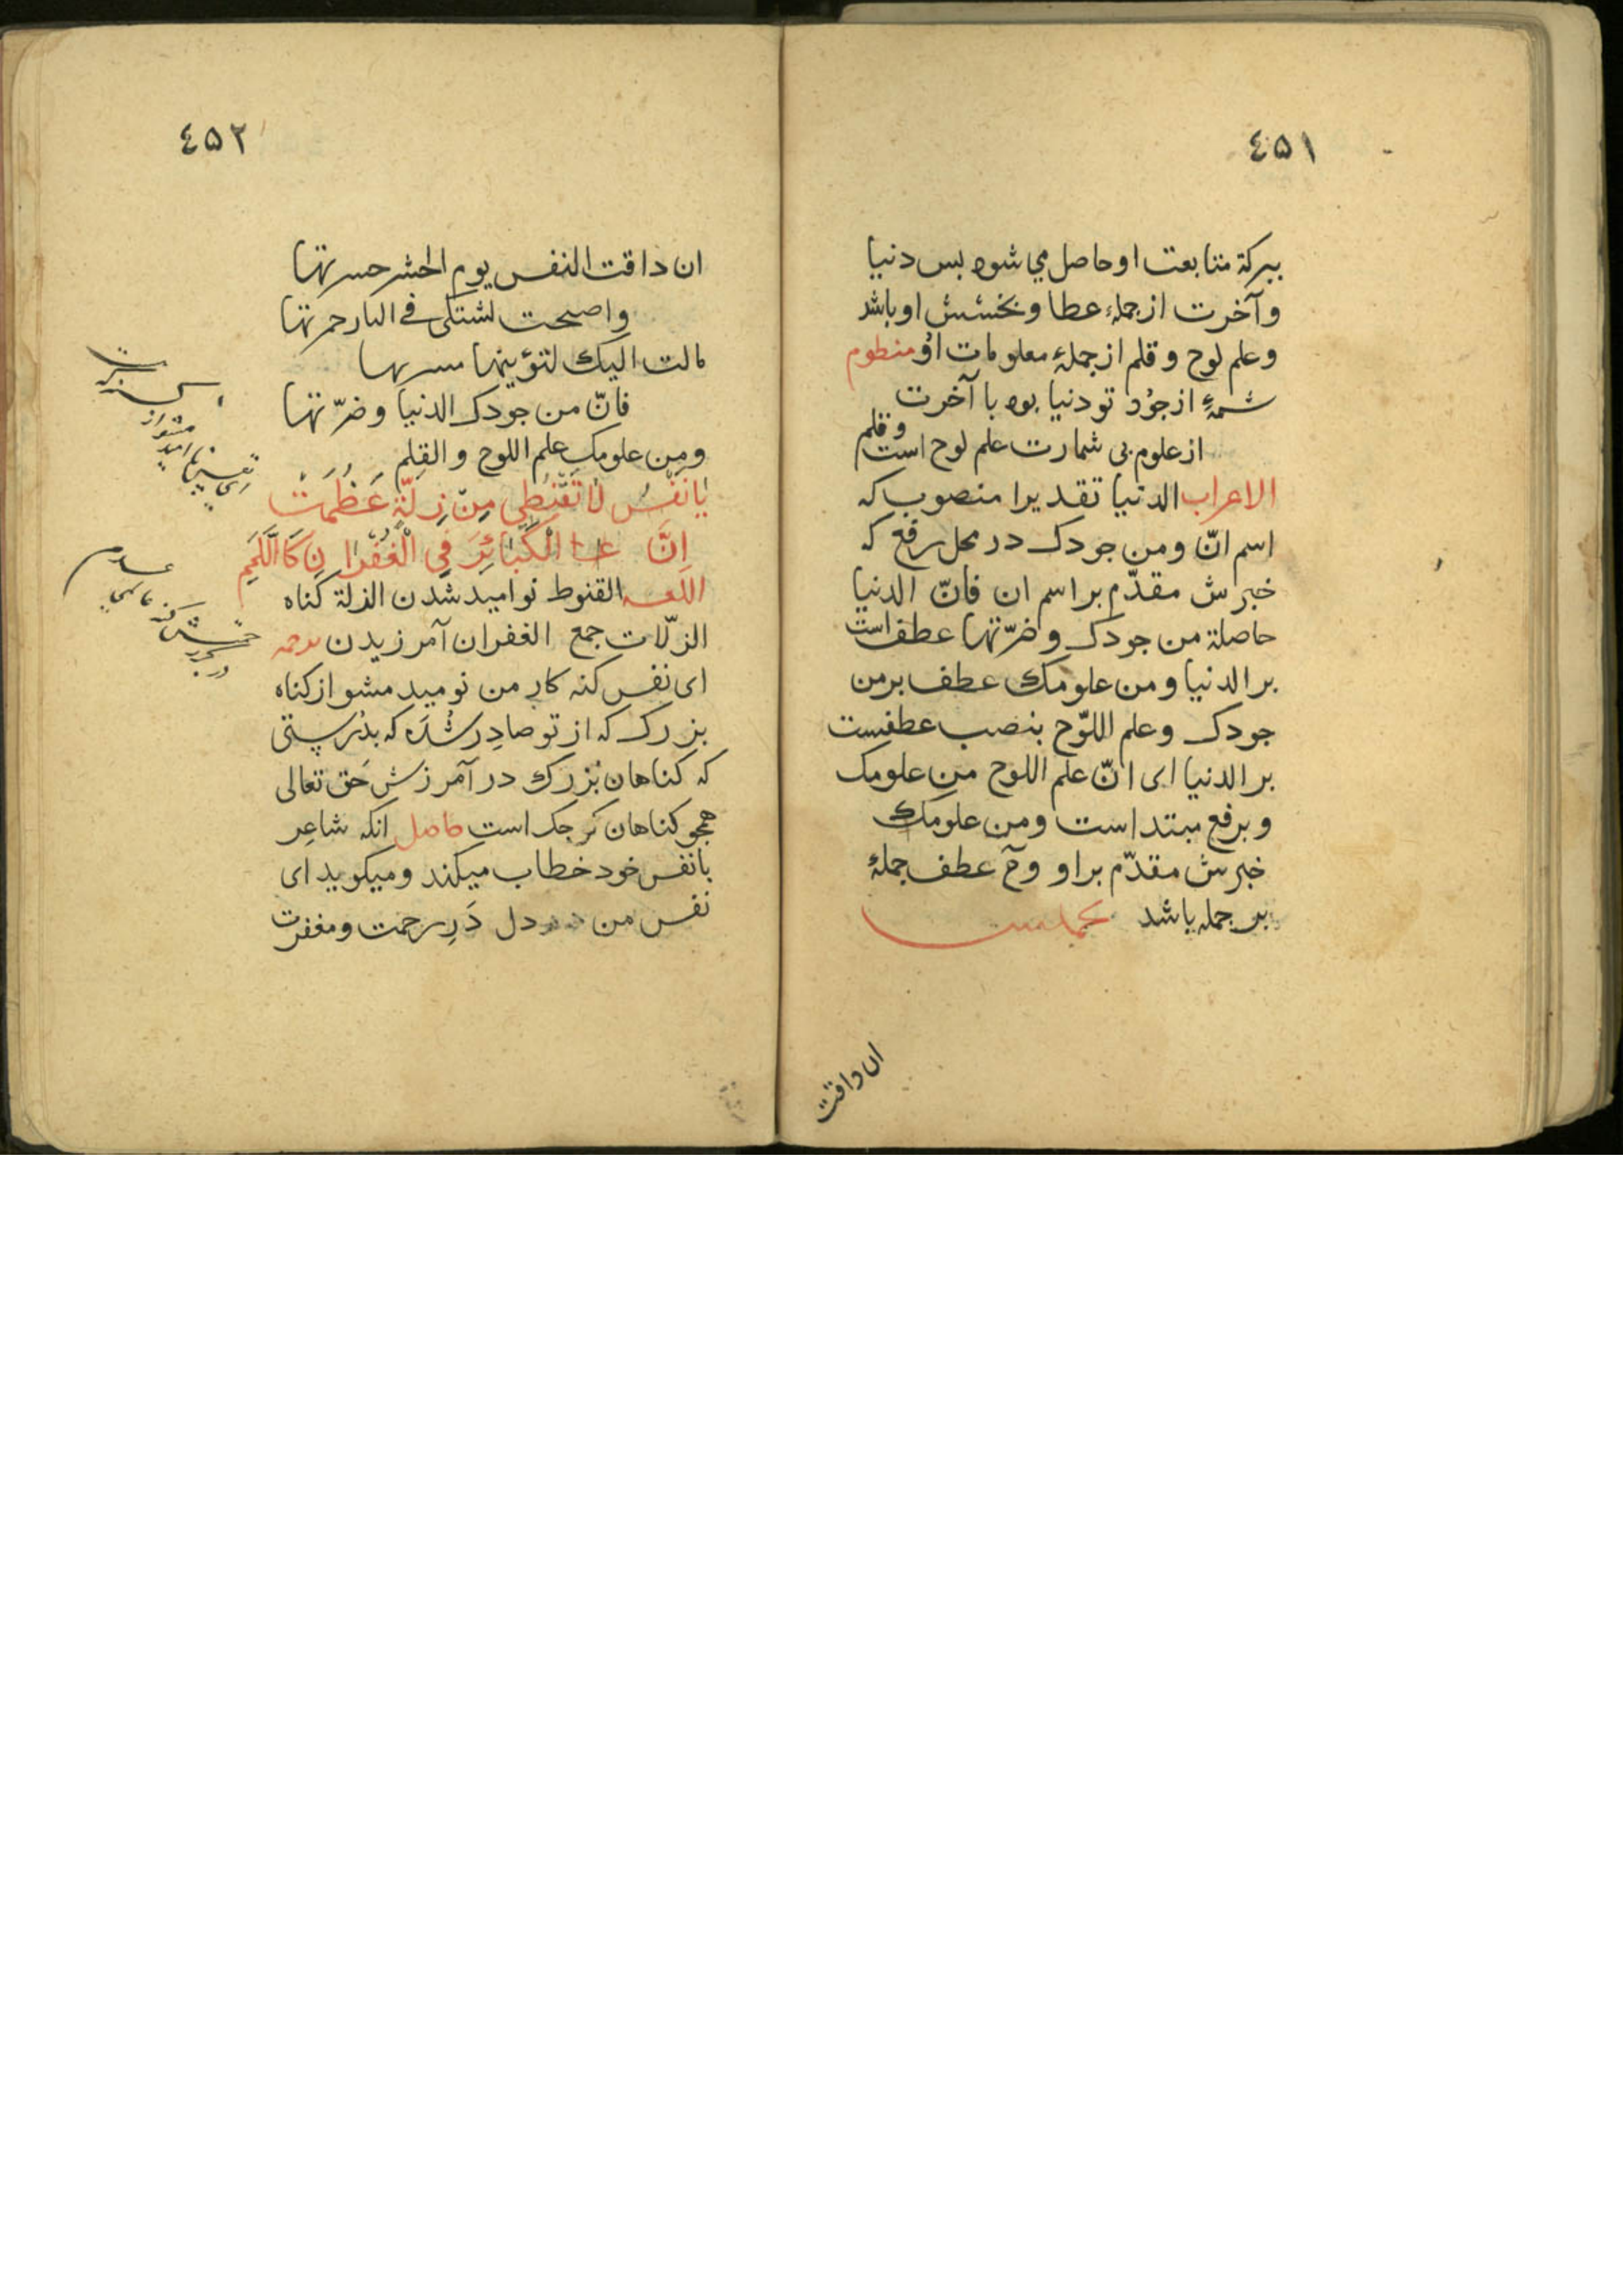 ٤٥١
ببركة متابعت او حاصل مي شوه بس دنيا
وآخرت از جملهٔ عطا و بخشش او باشد
وعلم لوح وقلم از جملهٔ معلومات او منظوم
شمهٔ از جود تو دنيا بوه با آخرت
از علوم بى شمارت علم لوح است وقلم
الاعراب الدنيا تقديرا منصوب كه
اسم انّ ومن جودك در محل رفع كه
خبرش مقدّم بر اسم ان فانّ الدنيا
حاصلة من جودك وضرّتها عطف است
بر الدنيا ومن علومك عطف بر من
جودك وعلم اللّوح بنصب عطفيست
بر الدنيا اى انّ علم اللوح من علومك
وبرفع مبتدا است ومن علومك
خبرش مقدّم بر او وح عطف جملهٔ
بر جمله باشد
ان داقت
٤٥٢
ان داقت النفس يوم الحشر حسرتها
واصبحت لشتكى فى النار حمرتها
مالت اليك لتؤينها مسرتها
فانّ من جودك الدنيا وضرّتها
ومن علومك علم اللوح والقلم
يٰا نَفْسُ لٰا تَقْنَطِى مِنْ زِلَّةٍ عَظُمَتْ
اِنَّ الْكَبٰائِرَ فِي الْغُفْرٰانِ كَاللَّمَمِ
اللغه القنوط نواميد شدن الزلة كناه
الزلّات جمع الغفران آمرزيدن ترجمه
اى نفس كنه كار من نوميد مشو از كناه
بزرك كه از تو صادِر شُدَه كه بدُرسِتى
كه كناهان بُزرك در آمرزش حَق تعالى
همجو كناهان كرجك است حاصل انكه شاعِر
با نفس خود خطاب ميكند وميكويد اى
نفس من دل دَرِ رحمت ومغفرت